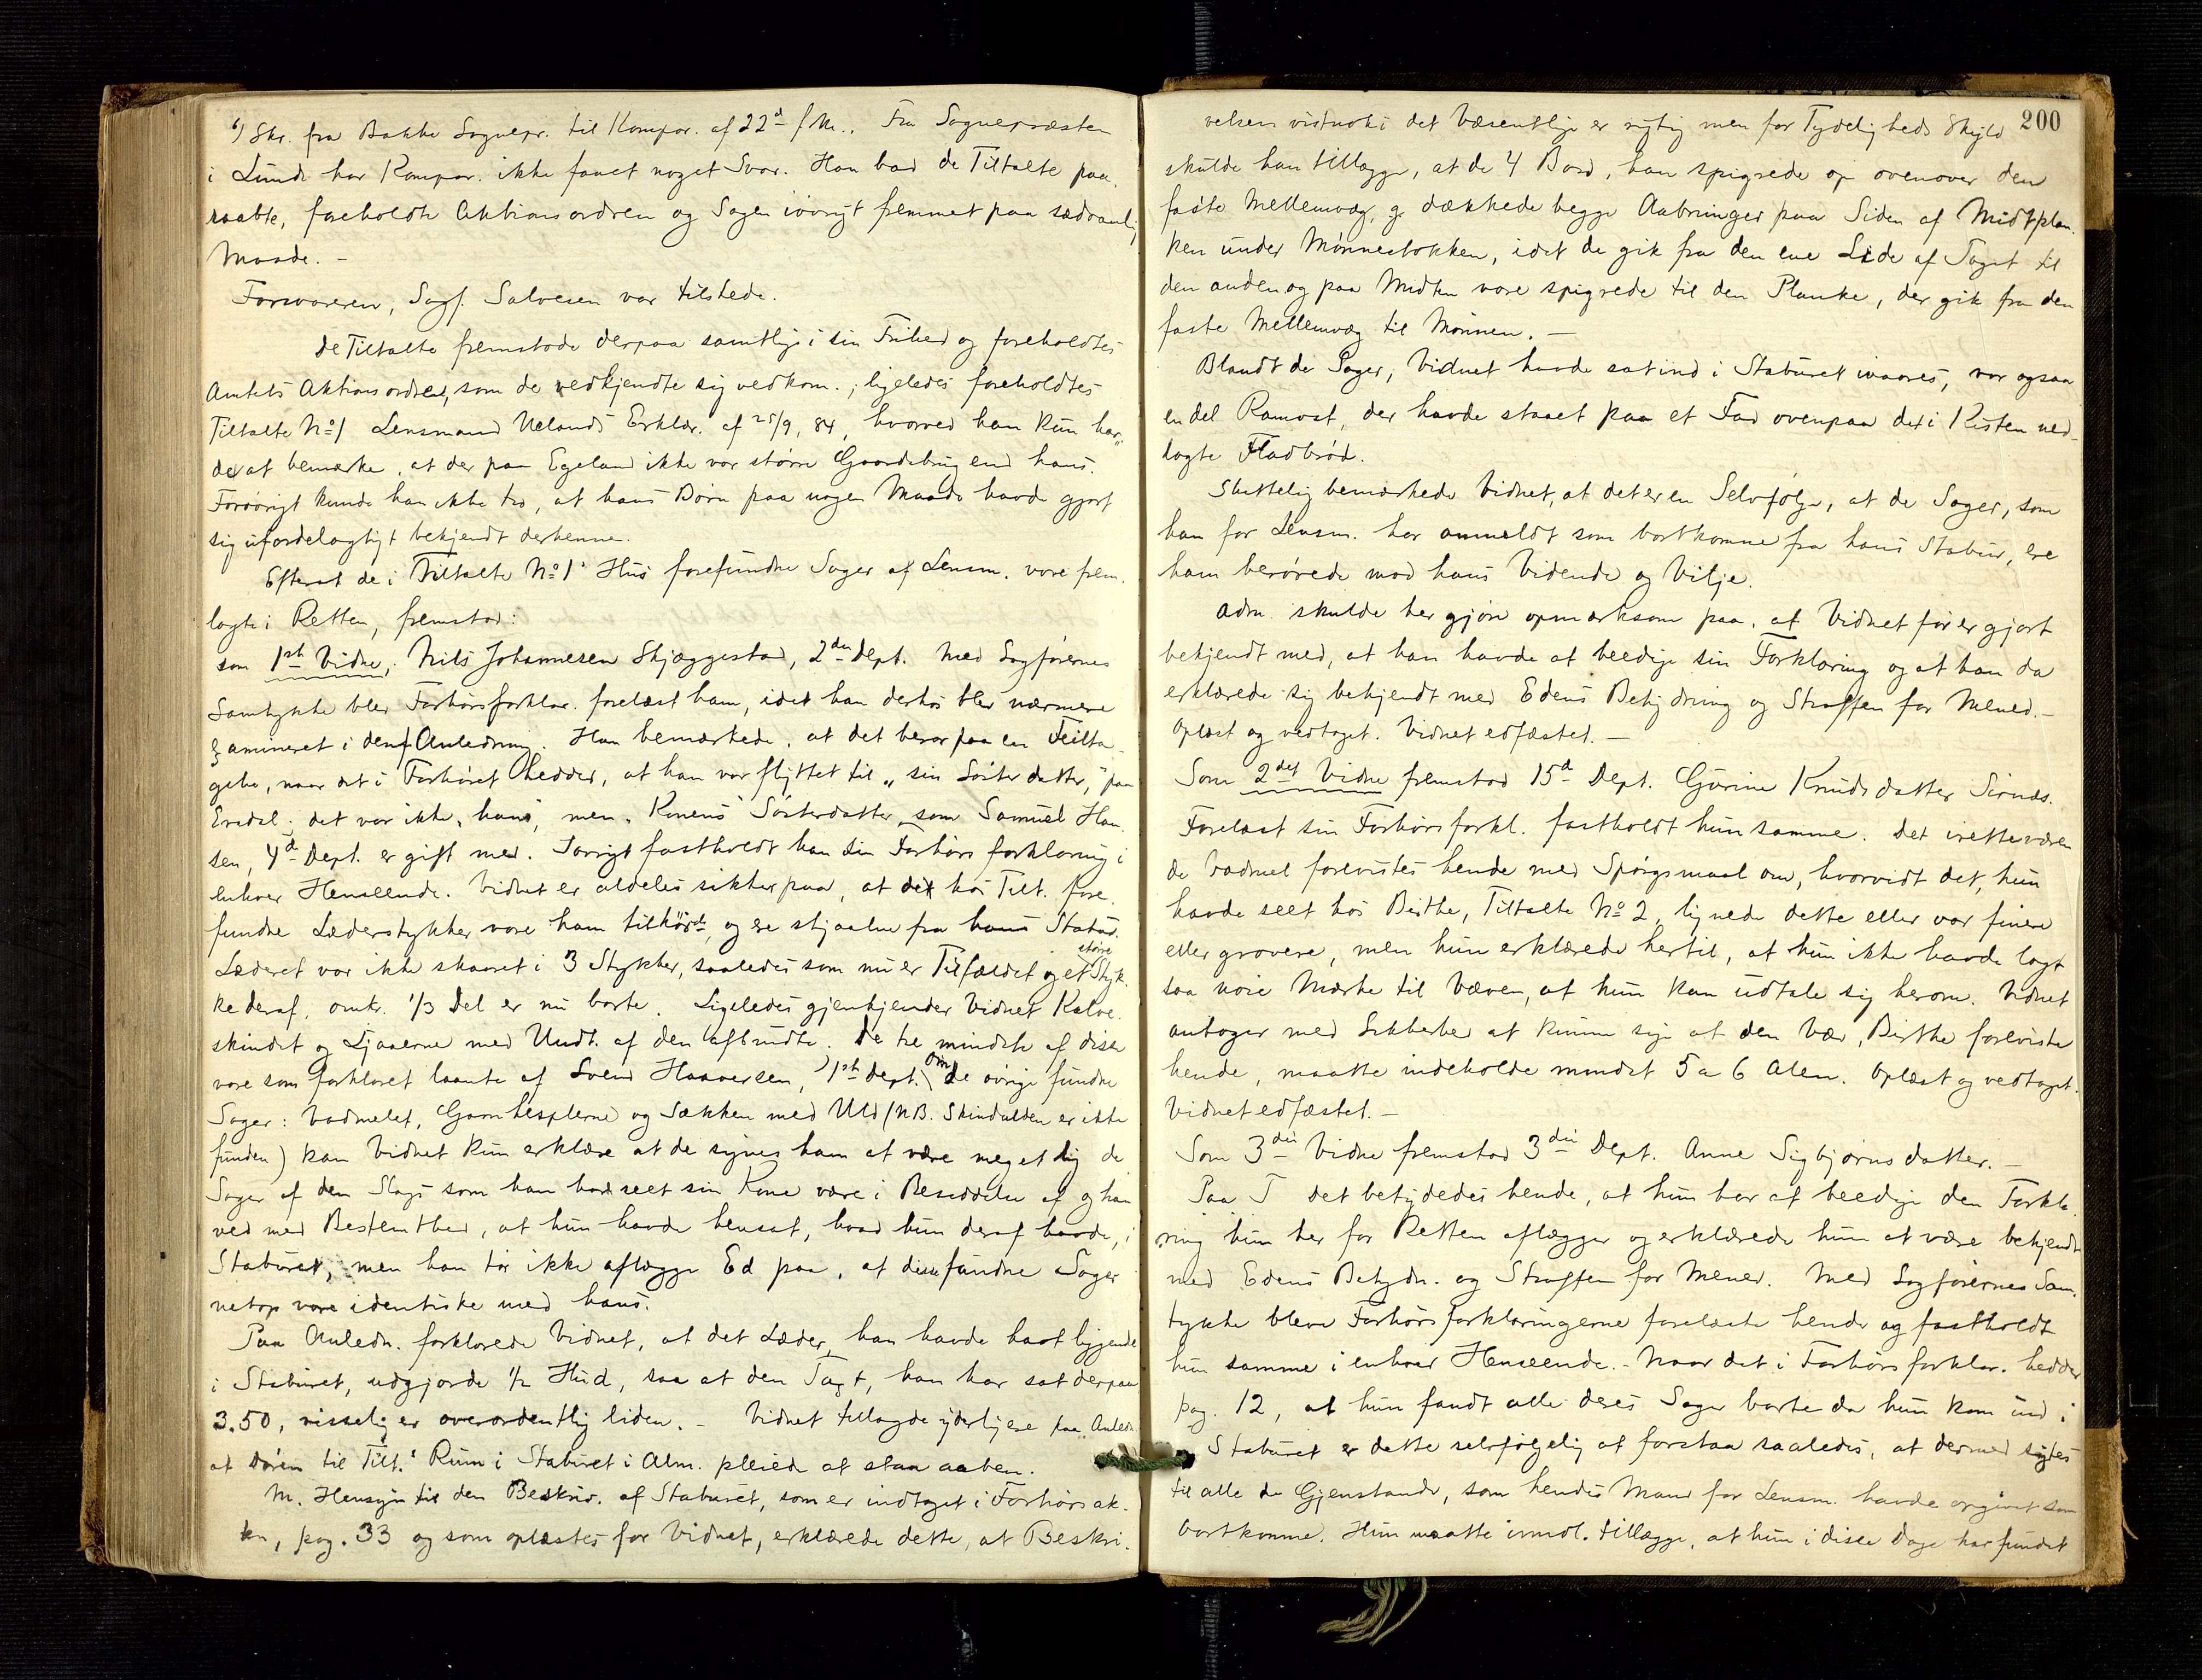 6) Skr. fra Bakke Sognepr. til Kompar. af 22d f.M.. Fra Sognepræsten
i Lunde har Kompar. ikke faaet noget Svar. Han bad de Tiltalte paa-
raabte, foreholdte Aktionsordren og Sagen iøvrigt fremmet paa sædvanlig
Maade. –
Forsvareren, Sagf. Salvesen var tilstede.
De Tiltalte fremstode derpaa samtlige i sin Frihed og foreholdtes
Amtets Aktionsordre, som de vedkjendte sig vedkom.; ligeledes foreholdtes
Tiltalte No 1 Lensmand Uelands Erklær. af 25/9, 84, hvorved han kun hav-
de at bemærke, at der paa Egeland ikke var større Gaardsbrug end hans.
Forøvrigt kunde han ikke tro, at hans Børn paa nogen Maade havde gjort
sig ufordelagtigt bekjendt derhenne.
Efterat de i Tiltalte No 1s Hus forefundne Sager af Lensm. vare frem-
lagte i Retten, fremstod:
som 1ste Vidne, Nils Johannesen Skjæggestad, 2den Dept. Med Sagførernes
Samtykke blev Forhørsforklar. forelæst ham, idet han derhos blev nærmere
examineret i den Anledning. Han bemærkede, at det beror paa en Feilta-
gelse, naar det i Forhøret hedder, at han var flyttet til "sin Søsterdatter," paa
Eradal; det var ikke "hans", men "Konens" Søsterdatter, som Samuel Han-
sen, 4d Dept. er gift med. Iøvrigt fastholdt han sin Forhørsforklaring i
enhver Henseende. Vidnet er aldeles sikker paa, at de hos Tilt. fore-
fundne Læderstykker vare ham tilhør., og ere stjaalne fra hans Stabur.
Læderet var ikke skaaret i 3 Stykker, saaledes som nu er Tilfældet og et større Styk-
ke deraf, omtr. 1/3 Del er nu borte. Ligeledes gjenkjender Vidnet Kalve-
skindet og Ljaaerne med Undt. af den afbrudte. De tre mindste af disse
vare som forklaret laante af Svend Haaversen, 1ste Dept. Om de øvrige fundne
Sager: Vadmelet, Garnhesplerne og Sækken med Uld (NB. Skindulden er ikke
funden) kan Vidnet kun erklære at de synes ham at være meget lig de
Sager af den Slags som han har seet sin Kone være i Besiddelse af og han
ved med Bestemthed, at hun havde hensat, hvad hun deraf havde, i
Staburet, men han tør ikke aflægge Ed paa, at disse fundne Sager
netop vare identiske med hans.
Paa Anledn. forklarede Vidnet, at det Læder, han havde havt liggende
i Staburet, udgjorde 1/2 Hud, saa at den Taxt, han har sat derpaa
3.50, visselig er overordentlig liden. – Vidnet tillagde yderligere paa Anledn.
at Døren til Tilt.s Rum i Staburet i Alm. pleiede at staa aaben.
M. Hensyn til den Beskriv. af Staburet, som er indtaget i Forhørsak-
ten, pag. 33 og som oplæstes for Vidnet, erklærede dette, at Beskri-
200
velsen vistnok i det Væsentlige er rigtig men for Tydeligheds Skyld
skulde han tillægge, at de 4 Bord, han spigrede op ovenover den
faste Mellemvæg, dækkede begge Aabninger paa Siden af Midtplan-
ken under Mønnestokken, idet de gik fra den ene Side af Taget til
den anden og paa Midten vare spigrede til den Planke, der gik fra den
faste Mellemvæg til Mønnen. –
Blandt de Sager, Vidnet havde sat ind i Staburet ivaares, var ogsaa
en del Ramost, der havde staaet paa et Fad ovenpaa det i Kisten ned-
lagte Fladbrød.
Sluttelig bemærkede Vidnet, at det er en Selvfølge, at de Sager, som
han for Lensm. har anmeldt som bortkomne fra hans Stabur, ere
ham berøvede mod hans Vidende og Vilje.
Adm. skulde her gjøre opmærksom paa, at Vidnet før er gjort
bekjendt med, at han havde at beedige sin Forklaring og at han da
erklærede sig bekjendt med Edens Betydning og Straffen for Mened. –
Oplæst og vedtaget. Vidnet edfæstet. –
Som 2det Vidne fremstod 15d Dept. Gurine Knudsdatter Sirnæs.
Forelæst sin Forhørsforkl. fastholdt hun samme. Det iretteværen-
de Vadmel forevistes hende med Spørgsmaal om, hvorvidt det, hun
havde seet hos Berthe, Tiltalte No 2, lignede dette eller var finere
eller grovere, men hun erklærede hertil, at hun ikke havde lagt
saa nøie Mærke til Væven, at hun kan udtale sig herom. Vidnet
antager med Sikkerhed at kunne sige at den Væv, Birthe foreviste
hende, maatte indeholde mindst 5 a 6 Alen. Oplæst og vedtaget.
Vidnet edfæstet. –
Som 3die Vidne fremstod 3die Dept. Anne Sigbjørnsdatter. –
Paa T det betydedes hende, at hun har at beedige den Forkla-
ring hun her for Retten aflægger og erklærede hun at være bekjendt
med Edens Betydn. og Straffen for Mened. Med Sagførernes Sam-
tykke bleve Forhørsforklaringerne forelæste hende og fastholdt
hun samme i enhver Henseende. – Naar det i Forhørsforklar. hedder
pag. 12, at hun fandt alle deres Sager borte da hun kom ind i
Staburet er dette selvfølgelig at forstaa saaledes, at dermed sigtes
til alle de Gjenstande, som hendes Mand for Lensm. havde opgivet som
bortkomne. Hun maatte imidl. tillægge, at hun i disse Dage har fundet